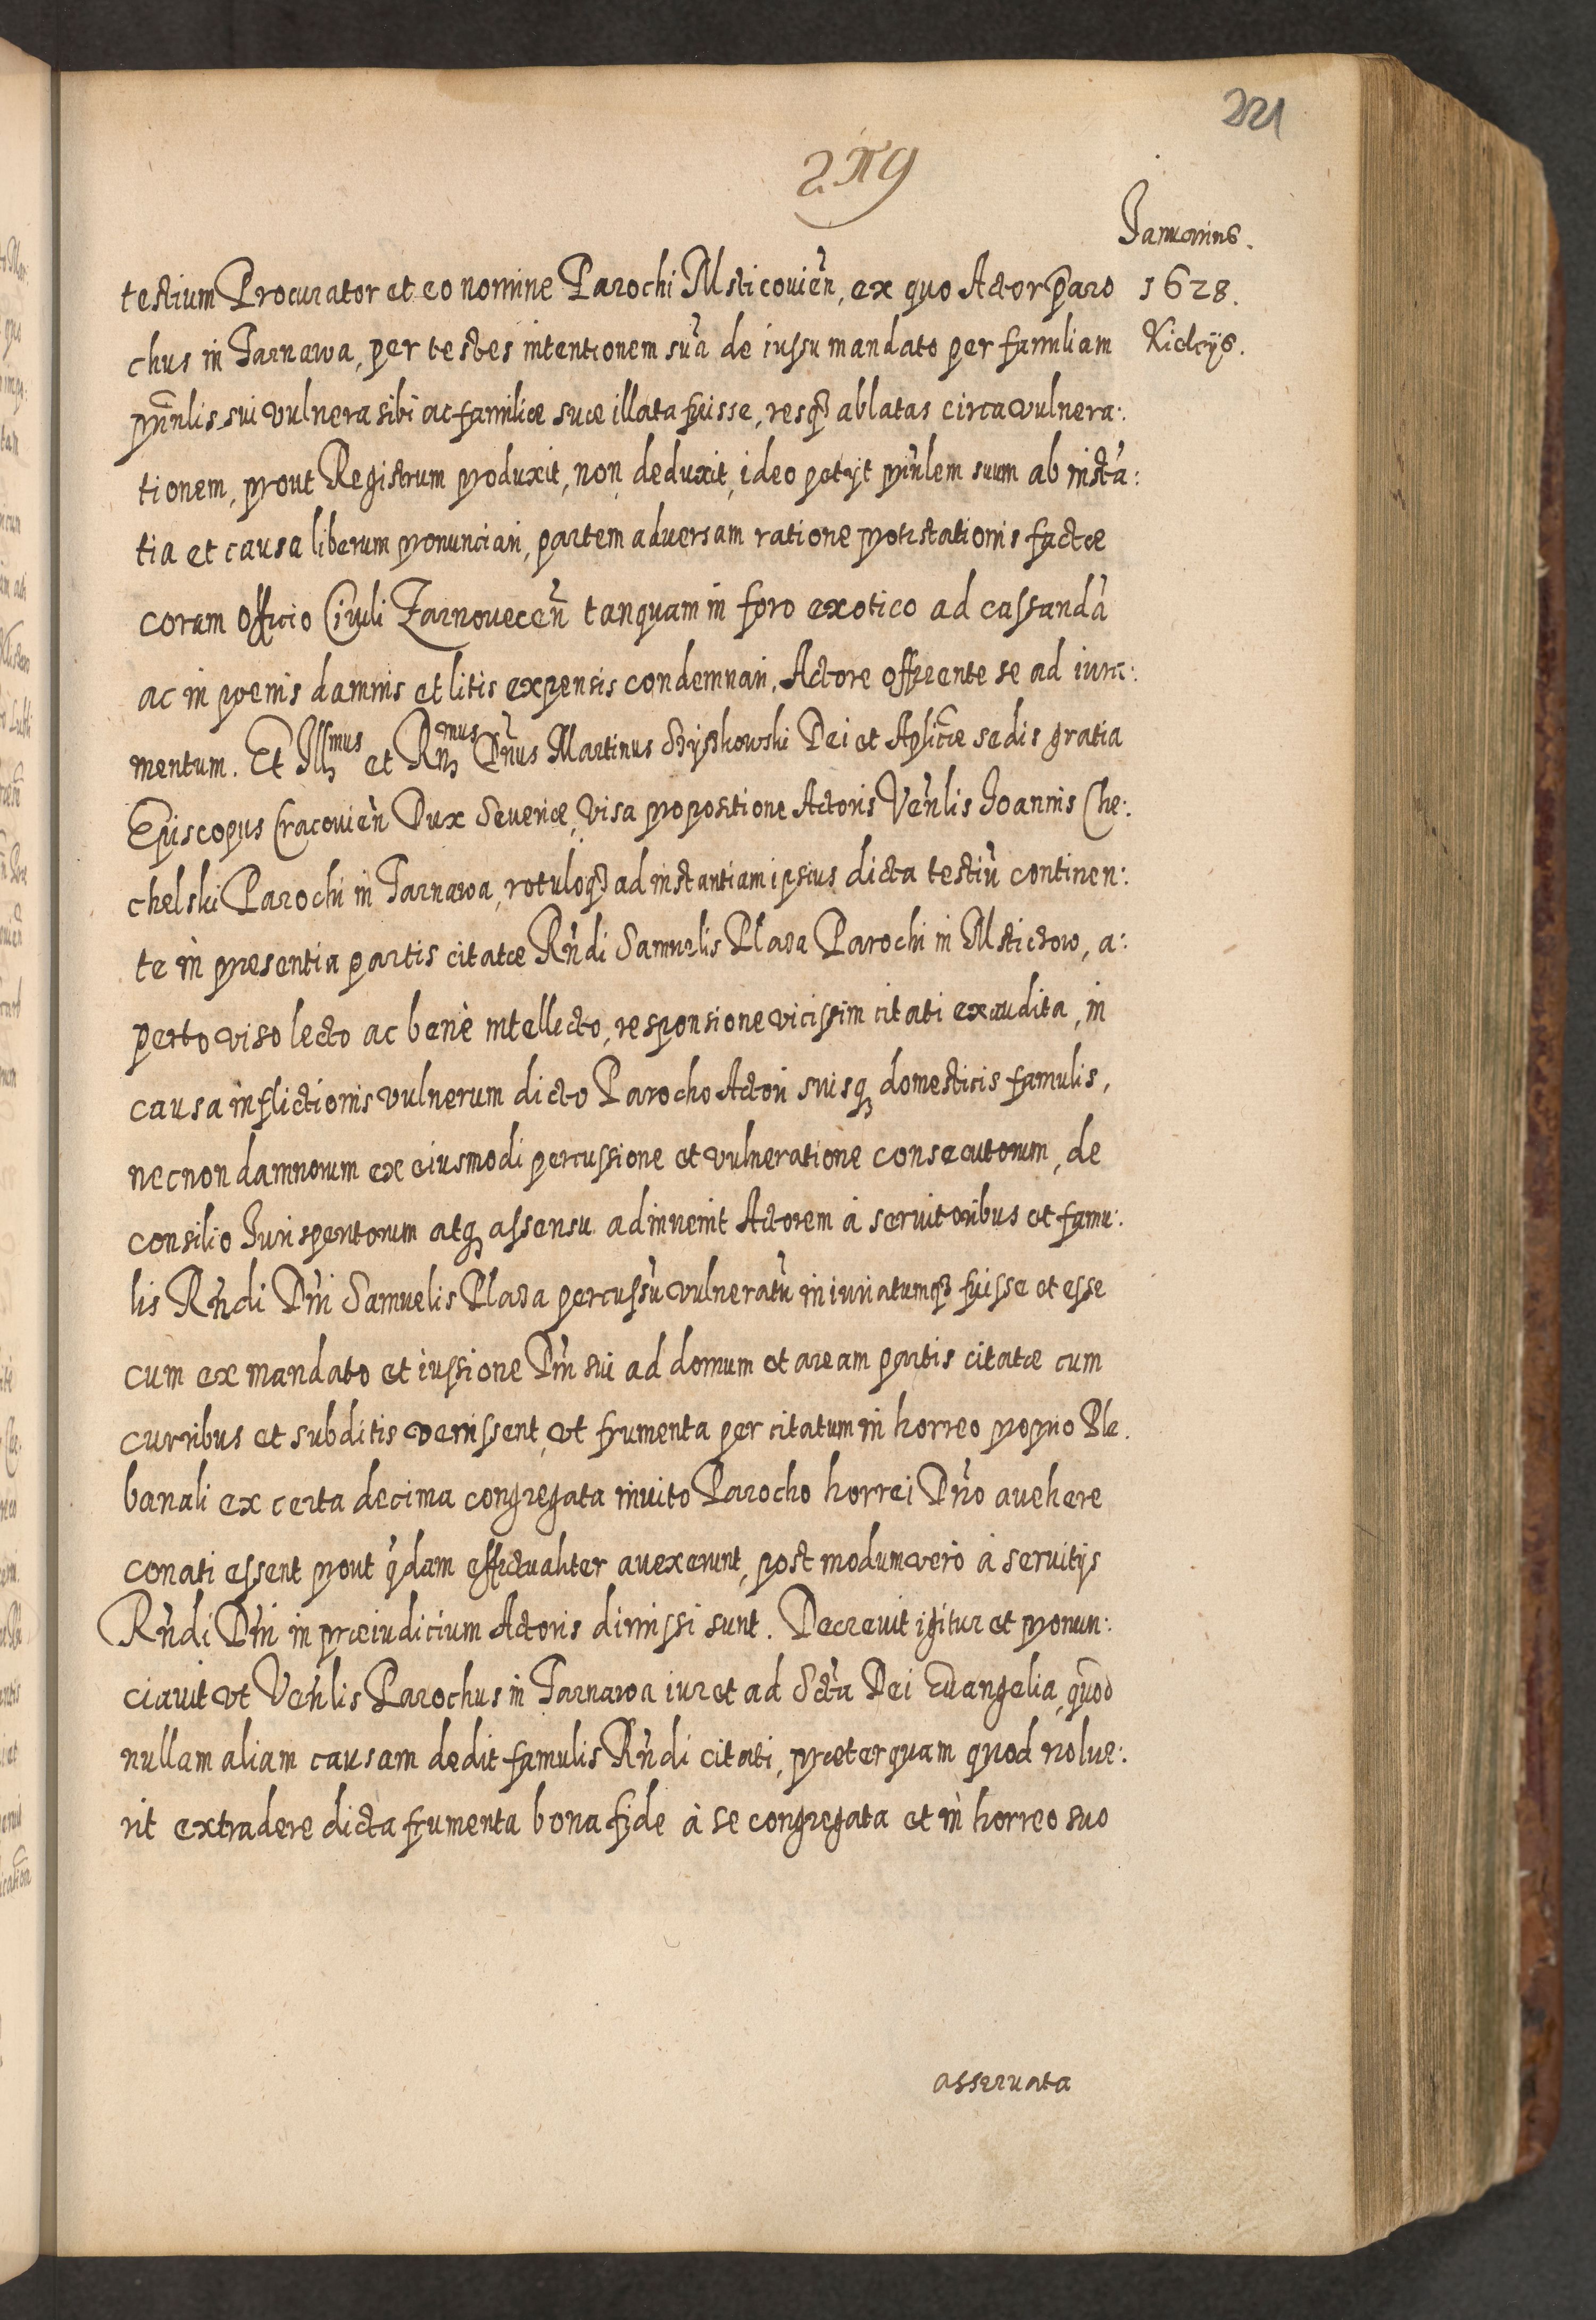 221
219
Januarius.
1628.
Kielcijs.
testium Procurator et eo nomine Parochi Msticouien̄, ex quo Actor Paro
chus in Tarnawa, per testes intentionem suā de iussu mandato per familiam
prīnlis sui vulnera sibi ac familiæ suæ illata fuisse, resq₃ ablatas circa vulnera:
tionem, prout Registrum produxit, non deduxit, ideo petijt prīnlem suum ab instā:
tia et causa liberum pronunciari, partem aduersam ratione protestationis factæ
coram Officio Ciuili Zarnouecen̄ tanquam in foro exotico ad cassandā
ac in poenis damnis et litis expensis condemnari, Actore offerente se ad iura:
mentum. Et Illmus et Rndmus Dn̄us Martinus Szyszkowski Dei et Aplicæ sedis gratia
Episcopus Cracouien̄ Dux Seueriæ, visa propositione Actoris Ven̄lis Joannis Che:
chelski Parochi in Tarnawa, rotuloq₃ ad instantiam ipsius dicta testiū continen:
te in presentia partis citatæ Rn̄di Samuelis Plaza Parochi in Msticzow, a:
perto viso lecto ac benè intellecto, responsione vicissim citati exaudita, in
causa inflictionis vulnerum dicto Parocho Actori suisq₃ domesticis famulis,
necnon damnorum ex eiusmodi percussione et vulneratione consecutorum, de
consilio Jurisperitorum atq₃ assensu adinuenit Actorem à seruitoribus et famu:
lis Rn̄di Dn̄i Samuelis Plaza percussū vulneratū iniuriatumq₃ fuisse et esse
cum ex mandato et iussione Dn̄i sui ad domum et aream partis citatæ cum
curribus et subditis venissent, vt frumenta per citatum in horreo proprio Ple.
banali ex certa decima congregata inuito Parocho horrei Dn̄o auehere
conati essent prout q̄dam effectualiter auexerunt, post modum verò à seruitijs
Rn̄di Dn̄i in præiudicium Actoris dimissi sunt. Decreuit igitur et pronun:
ciauit vt Ven̄lis Parochus in Tarnawa iuret ad Sctā Dei Euangelia, quod
nullam aliam causam dedit famulis Rn̄di citati, præterquam quod nolue:
rit extradere dicta frumenta bona fide à se congregata et in horreo suo
asseruata